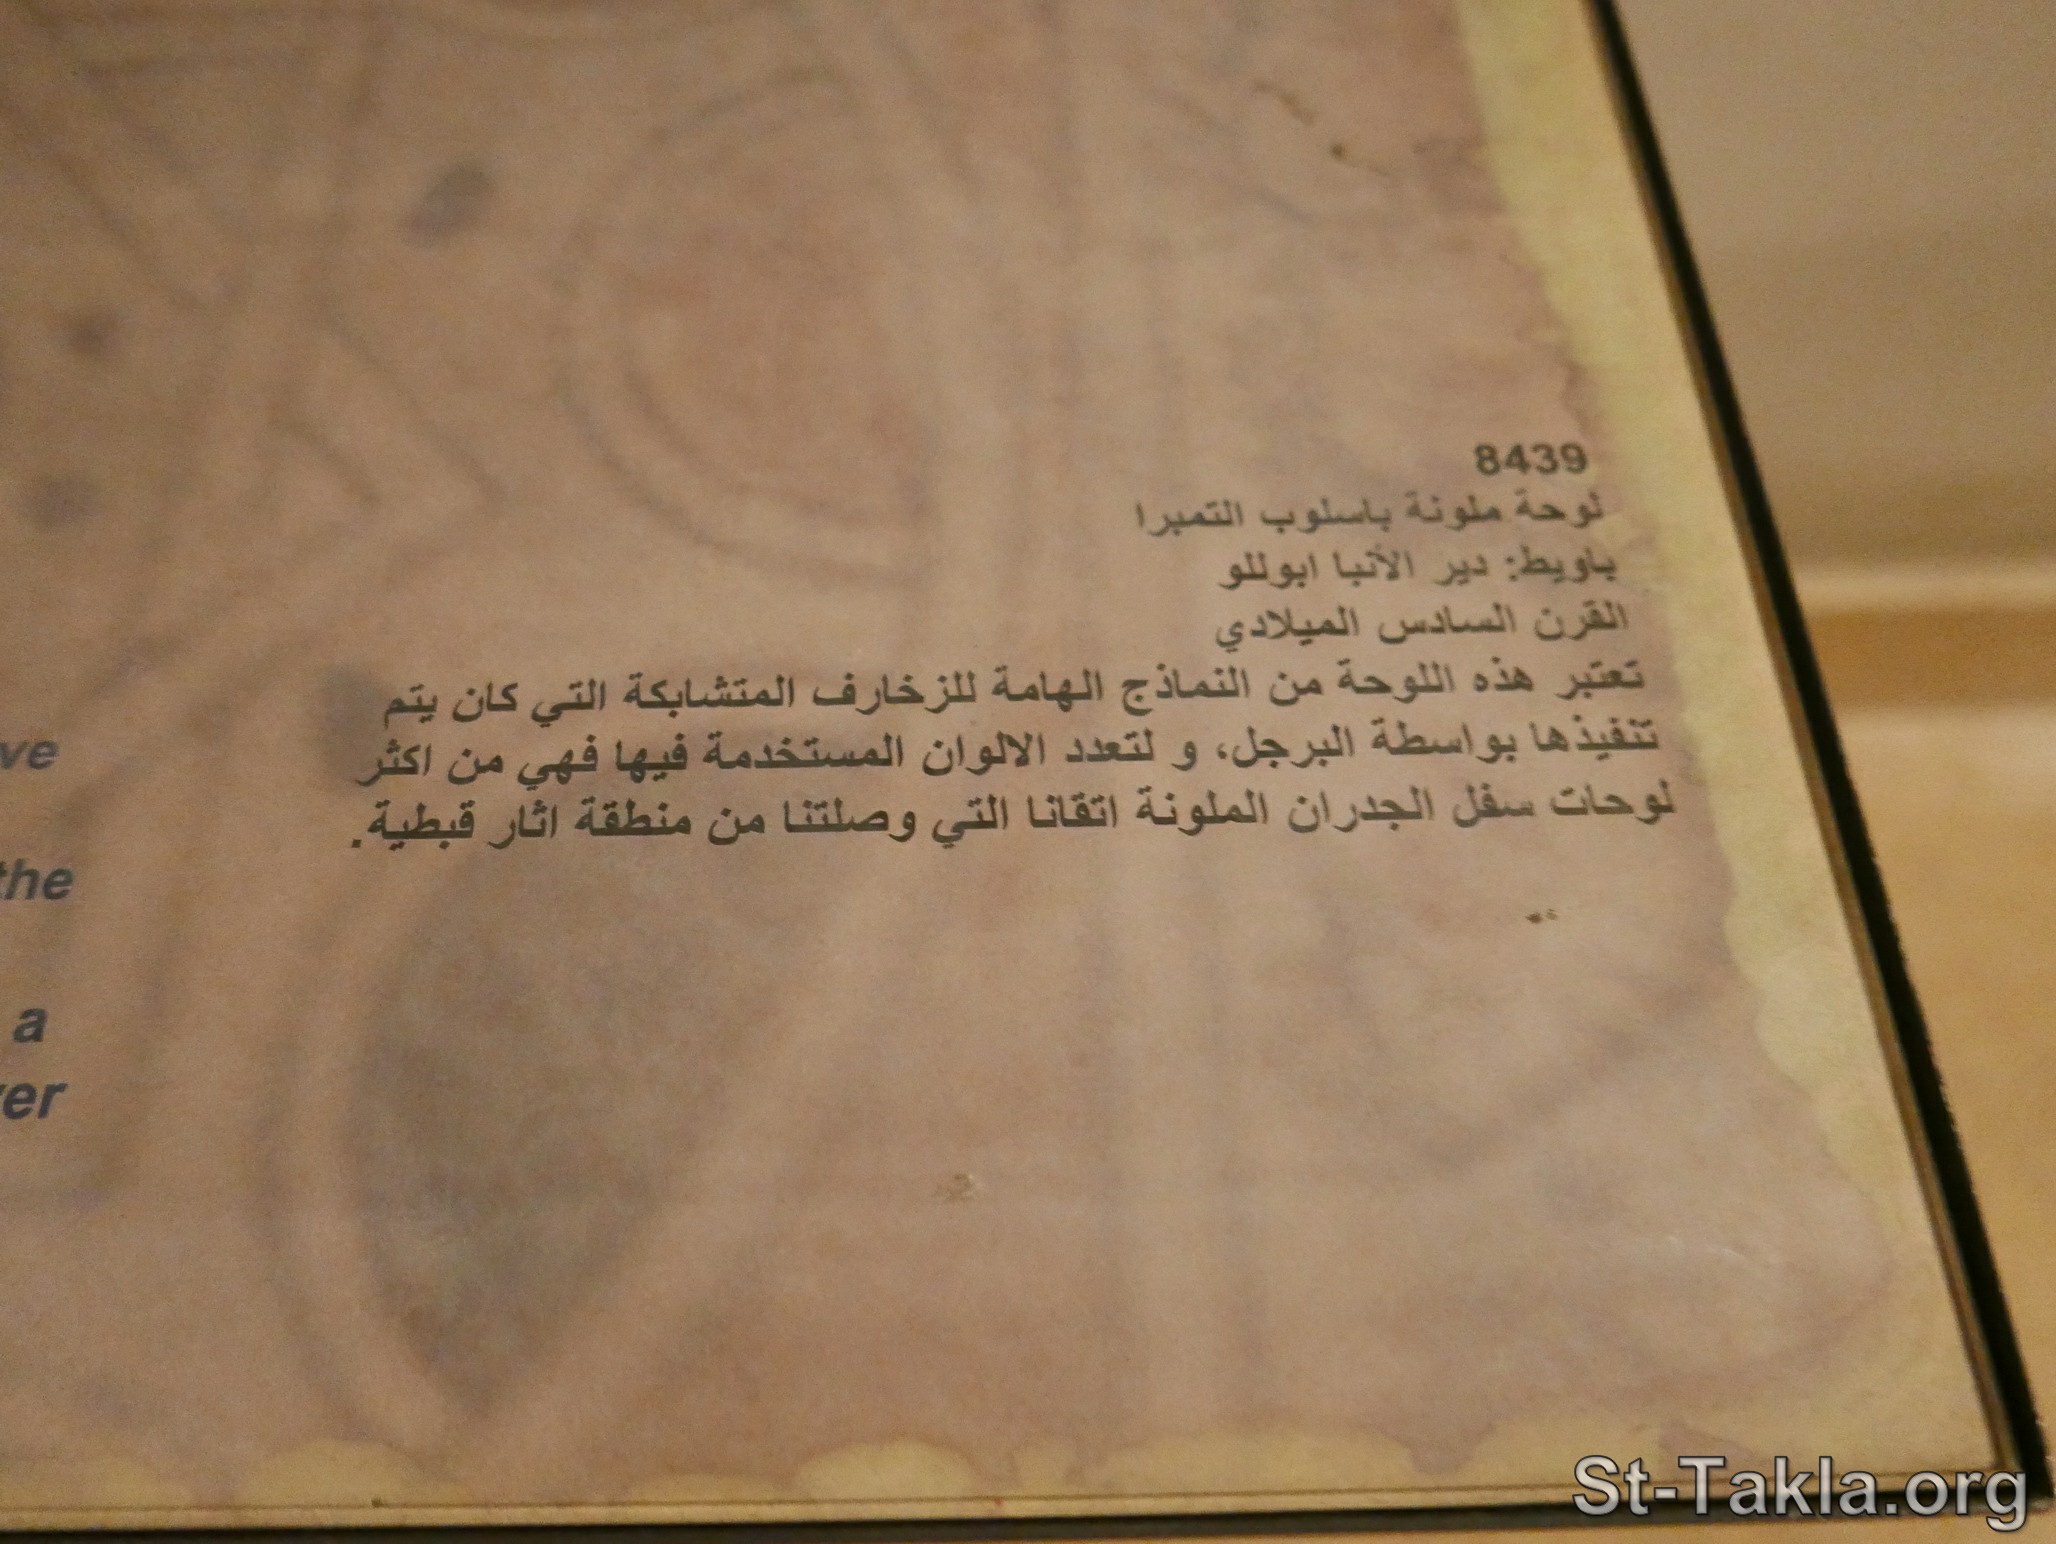 8439
لوحة ملونة باسلوب التمبرا
باويط: دير الأنبا ابوللو
القرن السادس الميلادي
تعتبر هذه اللوحة من النماذج الهامة للزخارف المتشابكة التي كان يتم
تنفيذها بواسطة البرجل، و لتعدد الالوان المستخدمة فيها فهي من اكثر
لوحات سفل الجدران الملونة اتقانا التي وصلتنا من منطقة اثار قبطية.
ve
the
a
er
St-Takla.org